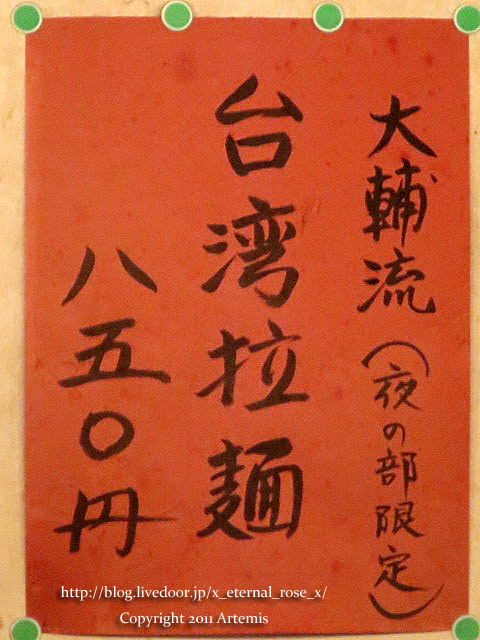 大輔流（夜の部限定）
台湾拉麺
八五〇円
http://blog.livedoor.jp/x_eternal_rose_x/
Copyright 2011 Artemis